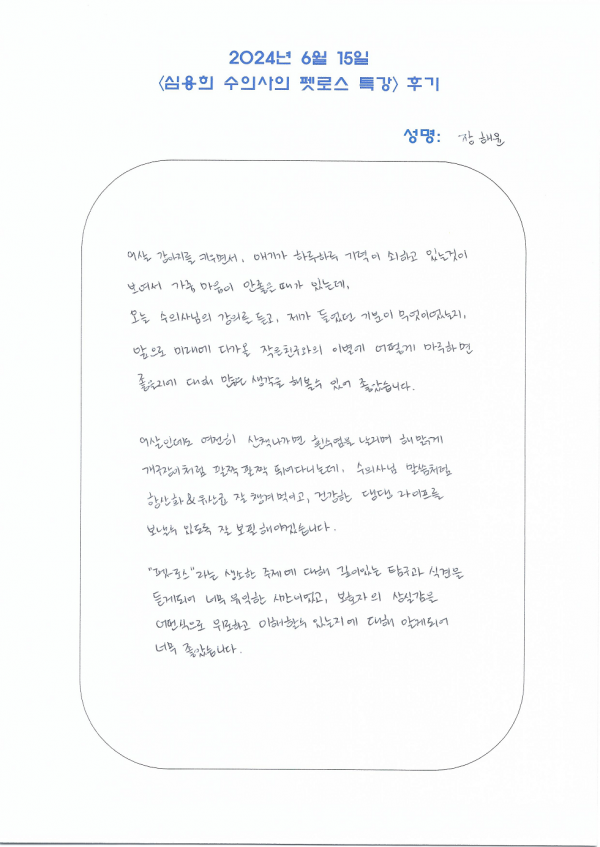 2024년 6월 15일
<심용희 수의사의 펫로스 특강> 후기
성명: 장해윤
여살 강아지를 키우면서, 애기가 하루하루 기력이 쇠하고 있는것이
보여서 가끔 마음이 안좋은 때가 있는데,
오늘 수의사님의 강의를 듣고, 제가 들었던 기분이 무엇이었는지,
앞으로 미래에 다가올 작은친구와의 이별에 어떻게 마주하면
좋을지에 대해 많은 생각을 해볼수 있어 좋았습니다.
여살인데도 여전히 산책나가면 흰수염을 날리며 해맑게
개구쟁이처럼 팔짝팔짝 뛰어다니는데, 수의사님 말씀처럼
항산화&유산균 잘 챙겨먹이고, 건강한 댕댕 라이프를
보낼수 있도록 잘 보필해야겠습니다.
"펫로스"라는 생소한 주제에 대해 깊이있는 탐구과 식견을
듣게되어 너무 유익한 시간이었고, 보호자의 상실감을
어떤식으로 위로하고 이해할수 있는지에 대해 알게되어
너무 좋았습니다.